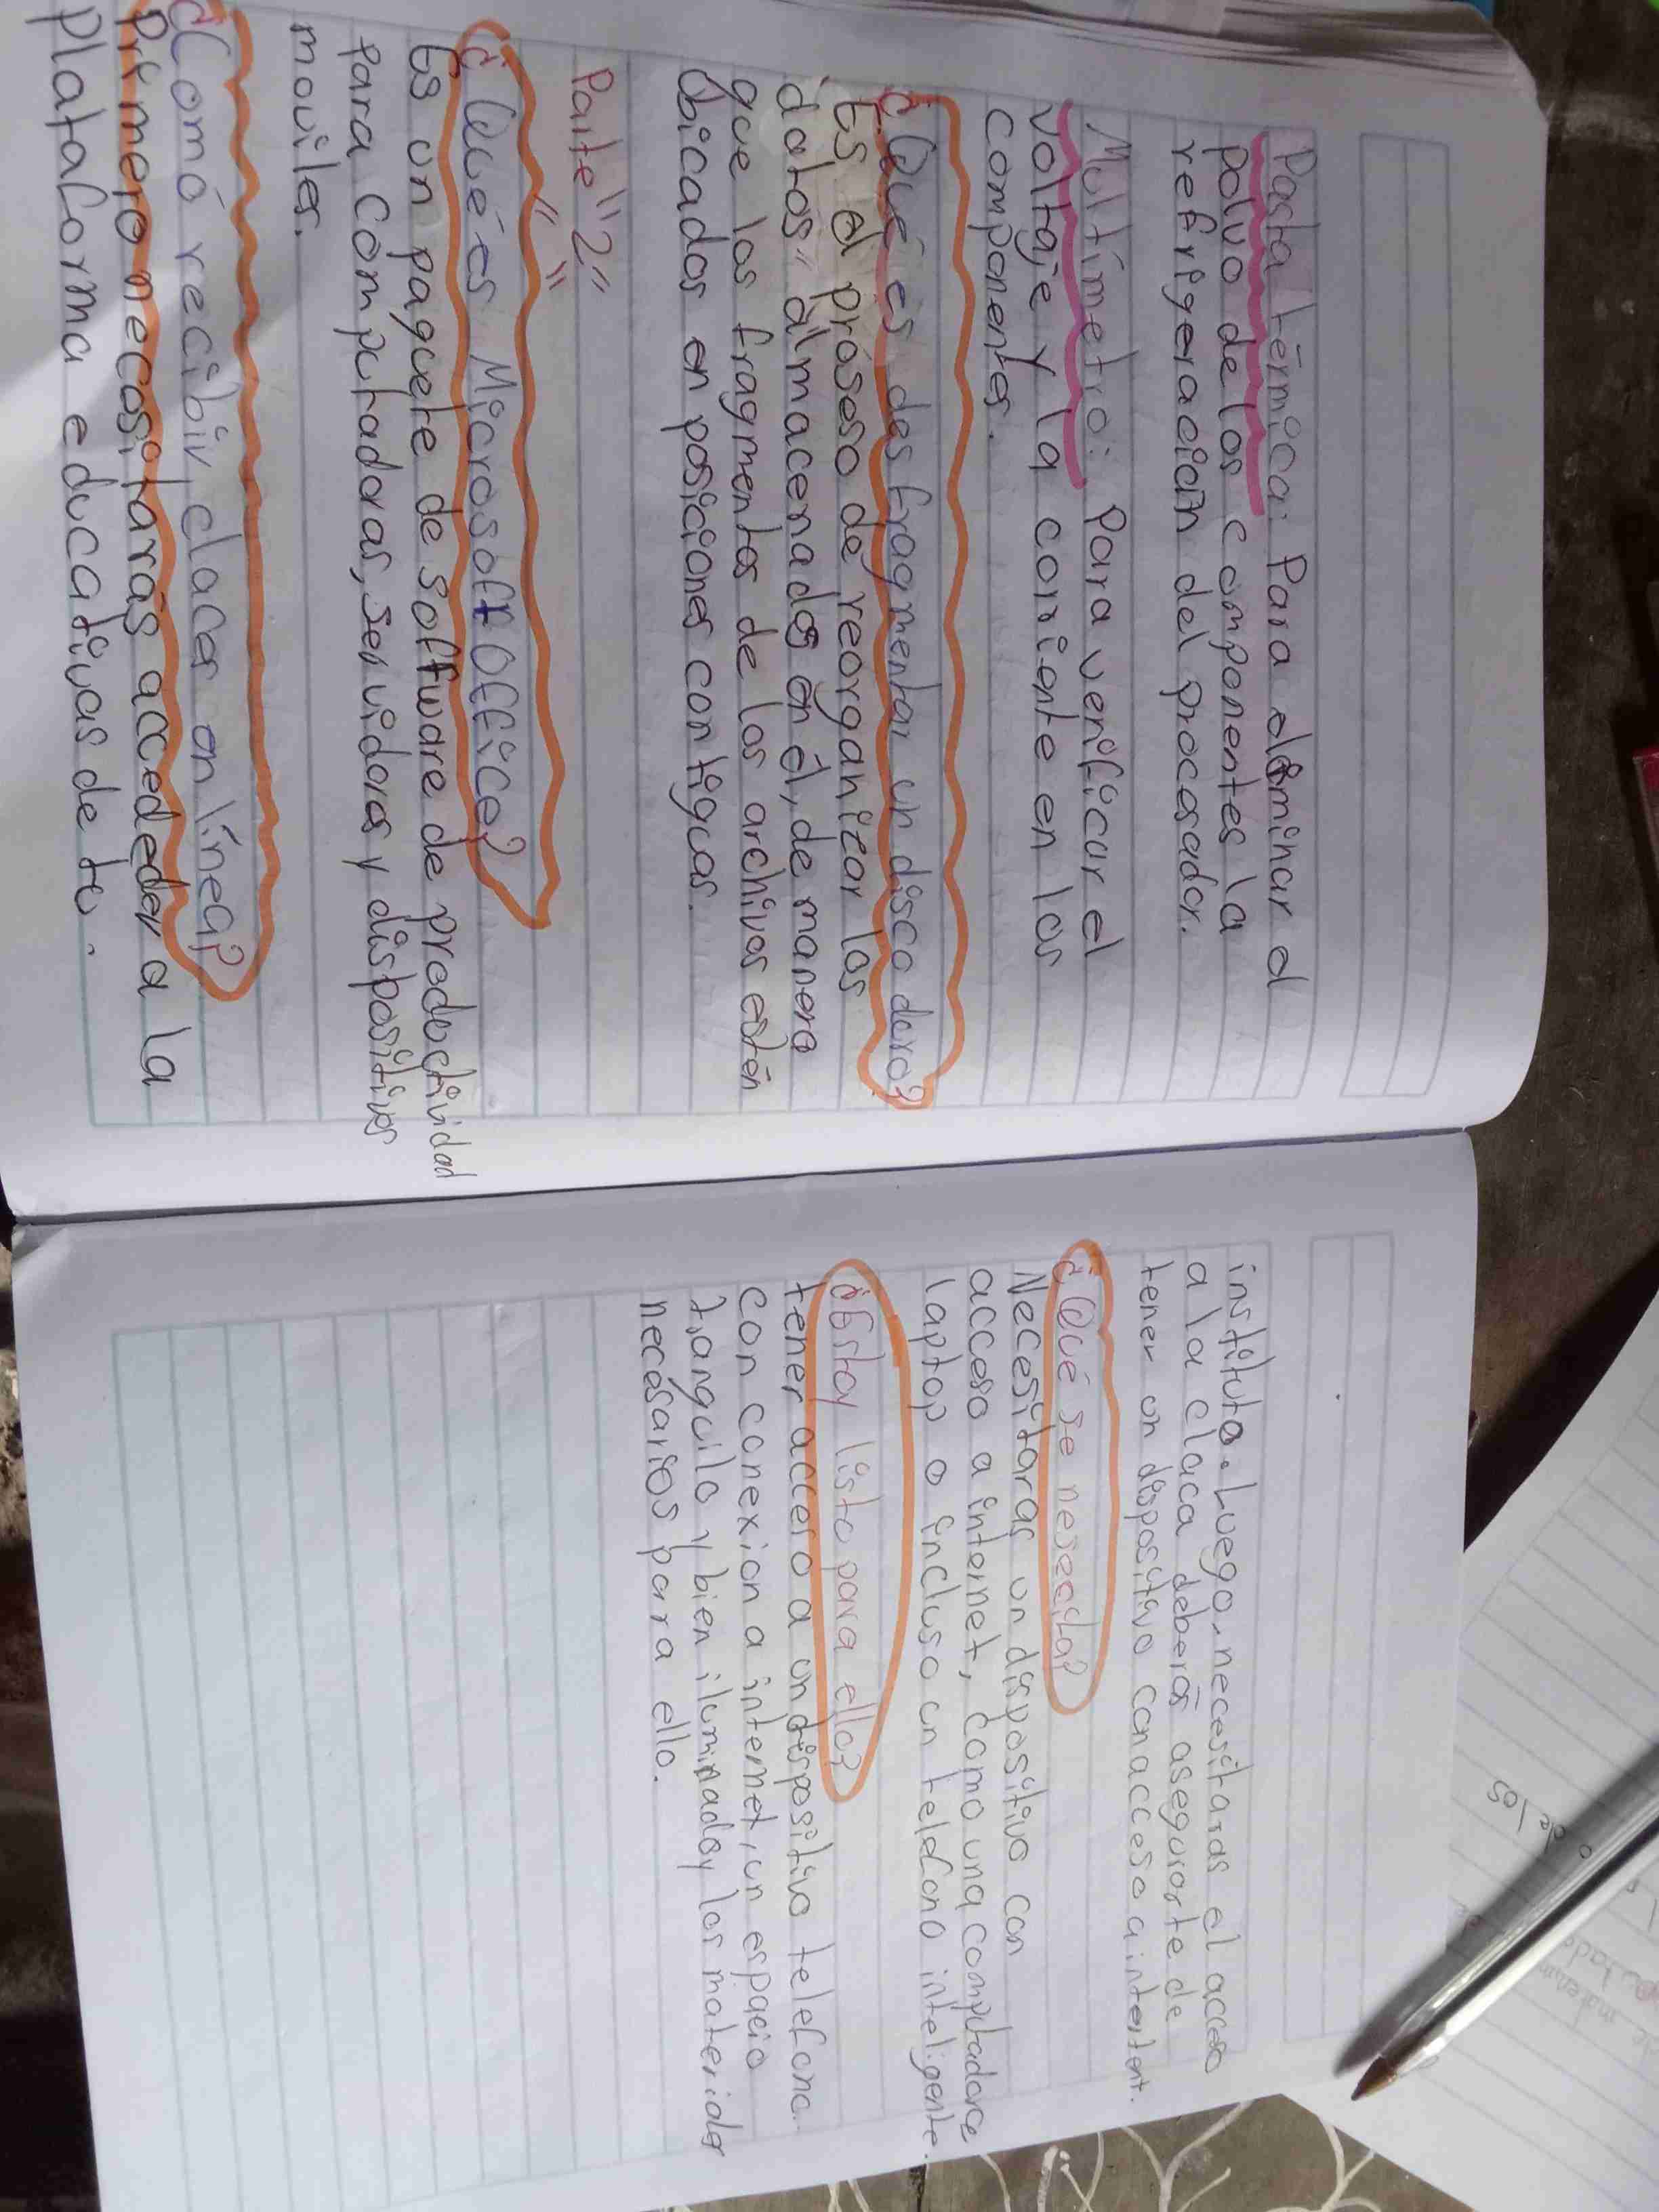 Pasta térmica: Para eleminar el
polvo de los componentes la
refrigeración del procesador.
Multímetro: Para verificar el
voltaje y la corriente en los
componentes.
¿Qué es desfragmentar un disco duro?
Es el próseso de reorganizar los
datos" álmacenados en él, de manera
que los fragmentos de los archivos estén
Obicados en posiciones contiguas.
Parte "2"
¿Qué es Microsoft Office?
Es un paquete de software de productividad
para computadoras, servidores y dispositivos
moviles.
¿Comó recibir clacer en línea?
Primero necesitarás accededer a la
Plataforma educativas de tu.
instituto. Luego, necesitaras el acceso
a la claca deberás asegurarte de
tener un dispositivo con acceso a intertent.
¿Qué se nesecita?
Necesitaras un dispositivo con
acceso a internet, como una computadorce
laptop o incluso un telefono inteligente.
¿Estoy listo para ello?
tener accero a un dispositivo telefono.
con conexion a internet, un espacio
tranquilo y bien iluminado y los materialer
necésarios para ello.
de los